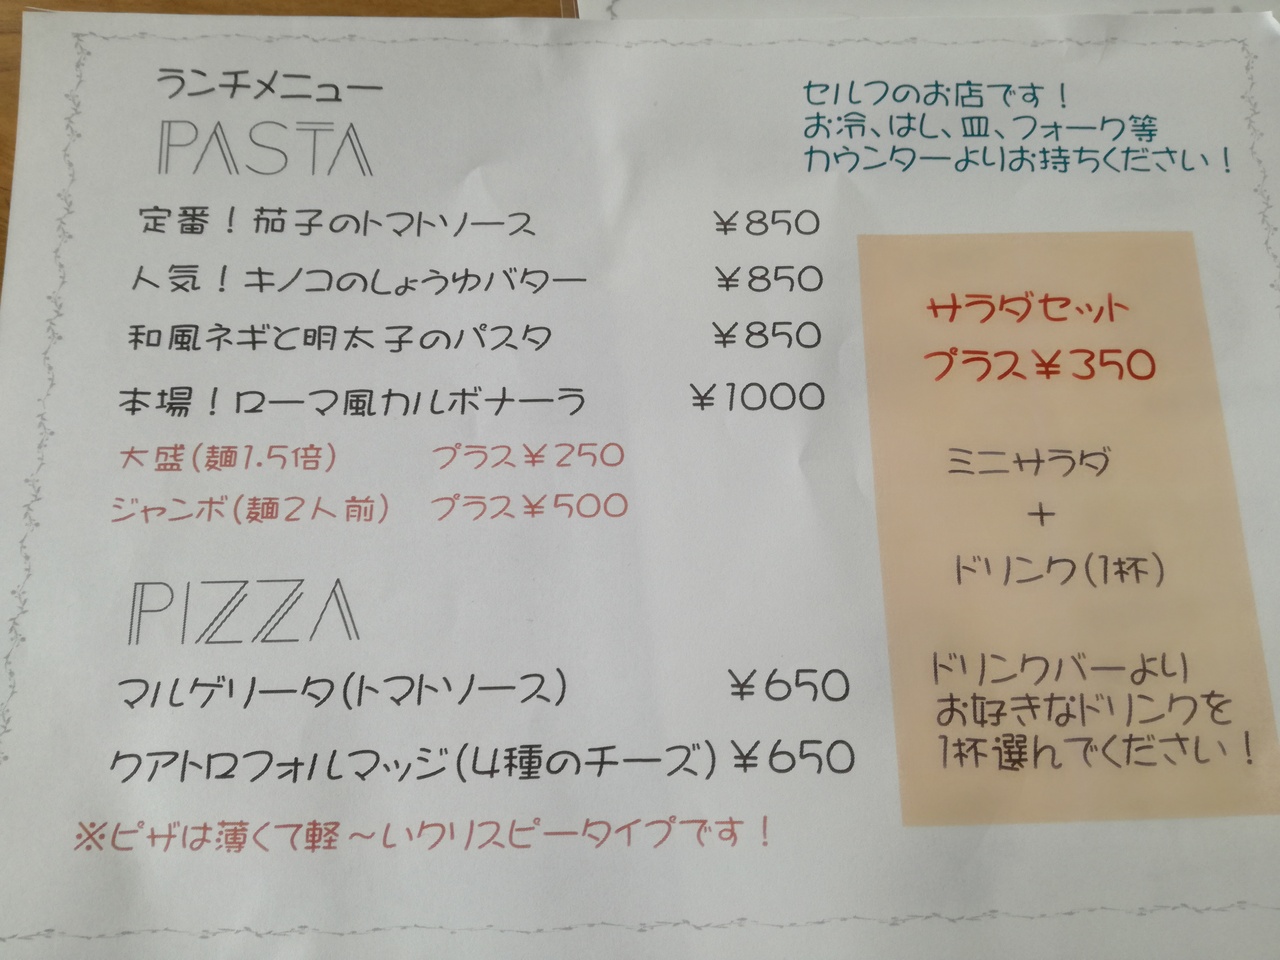 ランチメニュー
PASTA
定番！茄子のトマトソース ￥850
人気！キノコのしょうゆバター ￥850
和風ネギと明太子のパスタ ￥850
本場！ローマ風カルボナーラ ￥1000
大盛(麺1.5倍) プラス￥250
ジャンボ(麺2人前) プラス￥500
PIZZA
マルゲリータ(トマトソース) ￥650
クアトロフォルマッジ(4種のチーズ) ￥650
※ピザは薄くて軽～いクリスピータイプです！
セルフのお店です！
お冷、はし、皿、フォーク等
カウンターよりお持ちください！
サラダセット
プラス￥350
ミニサラダ
+
ドリンク(1杯)
ドリンクバーより
お好きなドリンクを
1杯選んでください！